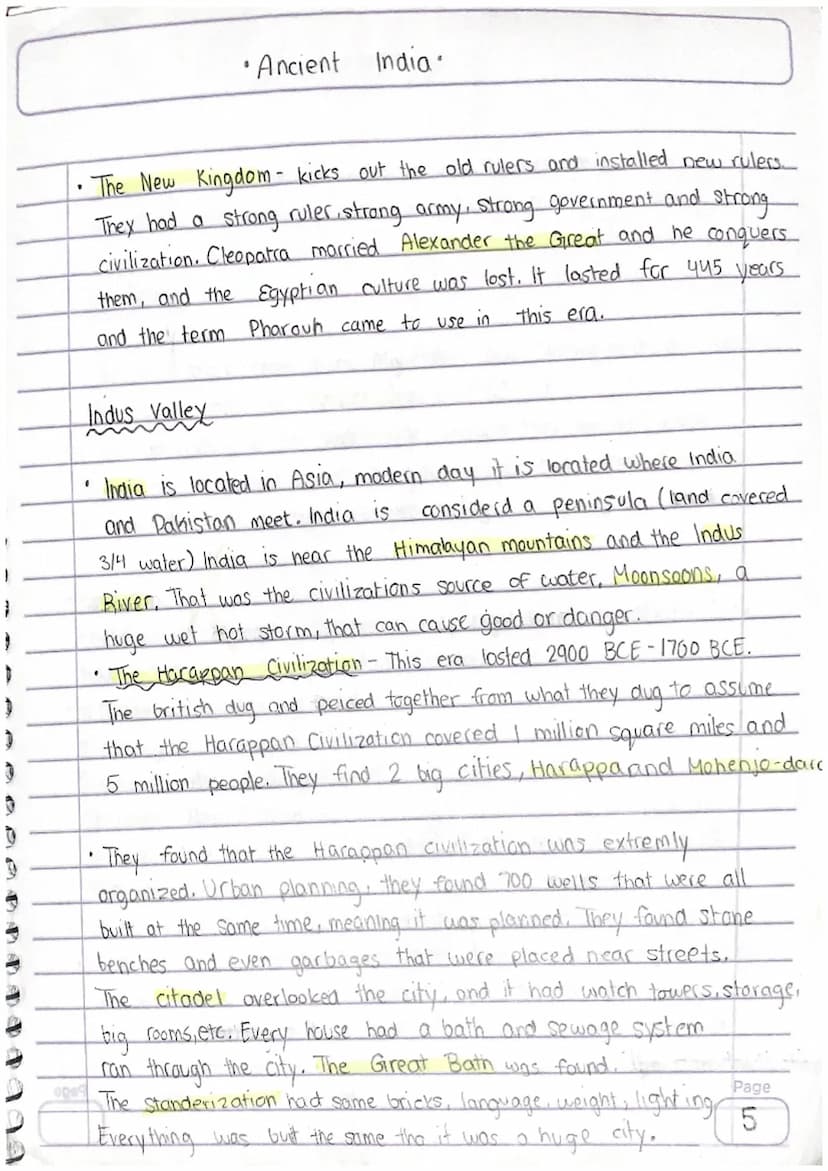 • Ancient India •
• The New Kingdom - kicks out the old rulers and installed new rulers.
They had a strong ruler, strong army, strong government and strong
civilization. Cleopatra married Alexander the Great and he conquers
them, and the Egyptian culture was lost. It lasted for 445 years
and the term Pharouh came to use in this era.
Indus Valley
• India is located in Asia, modern day it is located where India
and Pakistan meet. India is considerd a peninsula (land covered
3/4 water) India is near the Himalayan mountains and the Indus
River. That was the civilizations source of water. Moonsoons, a
huge wet hot storm, that can cause good or danger.
• The Harappan Civilization - This era lasted 2900 BCE - 1700 BCE.
The british dug and peiced together from what they dug to assume
that the Harappan Civilization covered 1 million square miles and
5 million people. They find 2 big cities, Harappa and Mohenjo-daro
• They found that the Harappan civilization was extremly
organized. Urban planning, they found 700 wells that were all
built at the same time, meaning it was planned. They found stone
benches and even garbages that were placed near streets.
The citadel overlooked the city, and it had watch towers, storage,
big rooms, etc. Every house had a bath and sewage system
ran through the city. The Great Bath was found.
The standerization had same bricks, language, weight, lighting
Everything was built the same tho it was a huge city.
Page
5